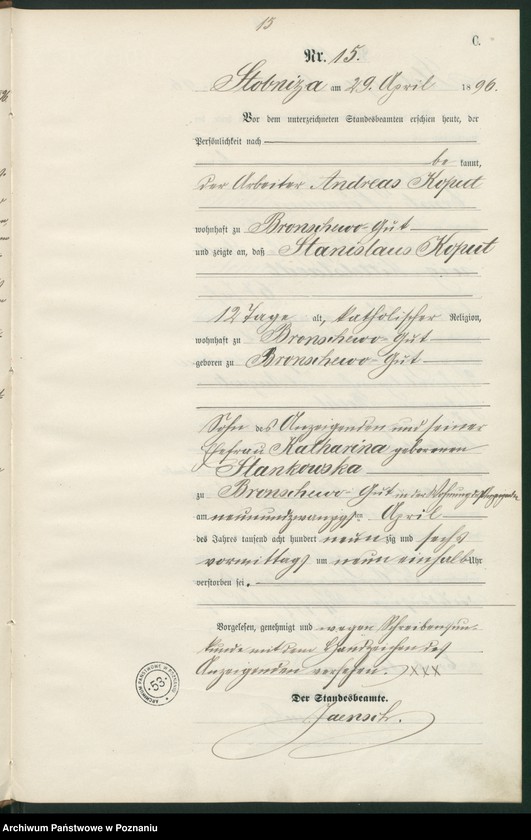 15
C.
Nr. 15.
Stobniza am 29. April 1896.
Vor dem unterzeichneten Standesbeamten erschien heute, der
Persönlichkeit nach
be kannt,
der Arbeiter Andreas Koput
wohnhaft zu Bronschewo-Gut
und zeigte an, daß Stanislaus Koput
12 Tage alt, katholischer Religion,
wohnhaft zu Bronschewo-Gut
geboren zu Bronschewo-Gut
Sohn des Anzeigenden und seiner
Ehefrau Katharina geborenen
Stankowska
zu Bronschewo-Gut in der Wohnung des Anzeigenden
am neunundzwanzigsten April
des Jahres tausend acht hundert neunzig und sechs
vormittags um neun einhalb Uhr
verstorben sei.
Vorgelesen, genehmigt und wegen Schreibensun-
kunde mit dem Handzeichen des
Anzeigenden versehen. XXX
Der Standesbeamte.
Jaensch.
ARCHIWUM PAŃSTWOWE W POZNANIU
53
Archiwum Państwowe w Poznaniu